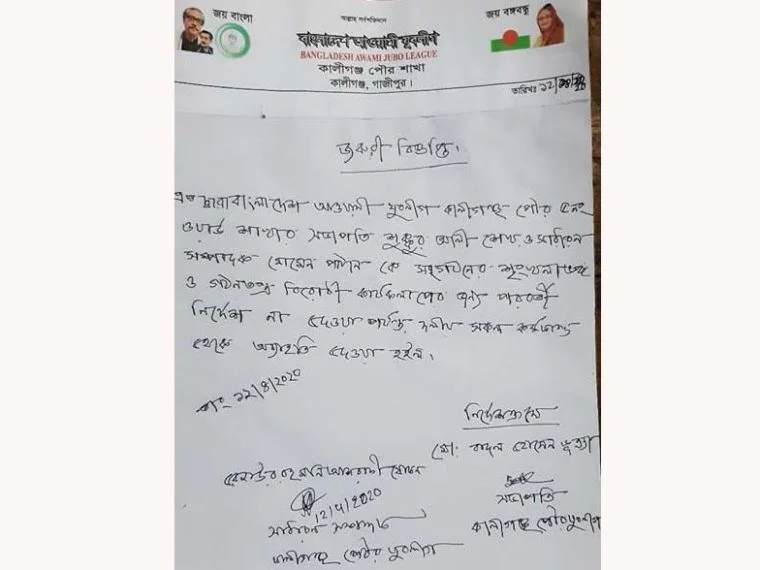 জয় বাংলা
আল্লাহ সর্বশক্তিমান
জয় বঙ্গবন্ধু
বাংলাদেশ আওয়ামী যুবলীগ
BANGLADESH AWAMI JUBO LEAGUE
কালীগঞ্জ পৌর শাখা
কালীগঞ্জ, গাজীপুর।
তারিখঃ ১২/
জরুরী বিজ্ঞপ্তি।
এত দ্বারা বাংলাদেশ আওয়ামী যুবলীগ কালীগঞ্জ পৌর ৫নং
ওয়ার্ড শাখার সভাপতি শুক্কুর আলী শেখ ও সাধারন
সম্পাদক হোসেন পাঠান কে সংগঠনের শৃংখলা ভঙ্গ
ও গঠনতন্ত্র বিরোধী কার্যকলাপের জন্য পরবর্তী
নির্দেশ না দেওয়া পর্যন্ত দলীয় সকল কর্মকান্ড
থেকে অব্যাহতি দেওয়া হইল।
তাং ১২/৪/2020
নির্দেশক্রমে
মো: বাদল হোসেন ভূইয়া
রেজাউর রহমান আশরাফী খোকন
12/4/2020
সভাপতি
সাধারন সম্পাদক
কালীগঞ্জ পৌর যুবলীগ
কালীগঞ্জ পৌর যুবলীগ